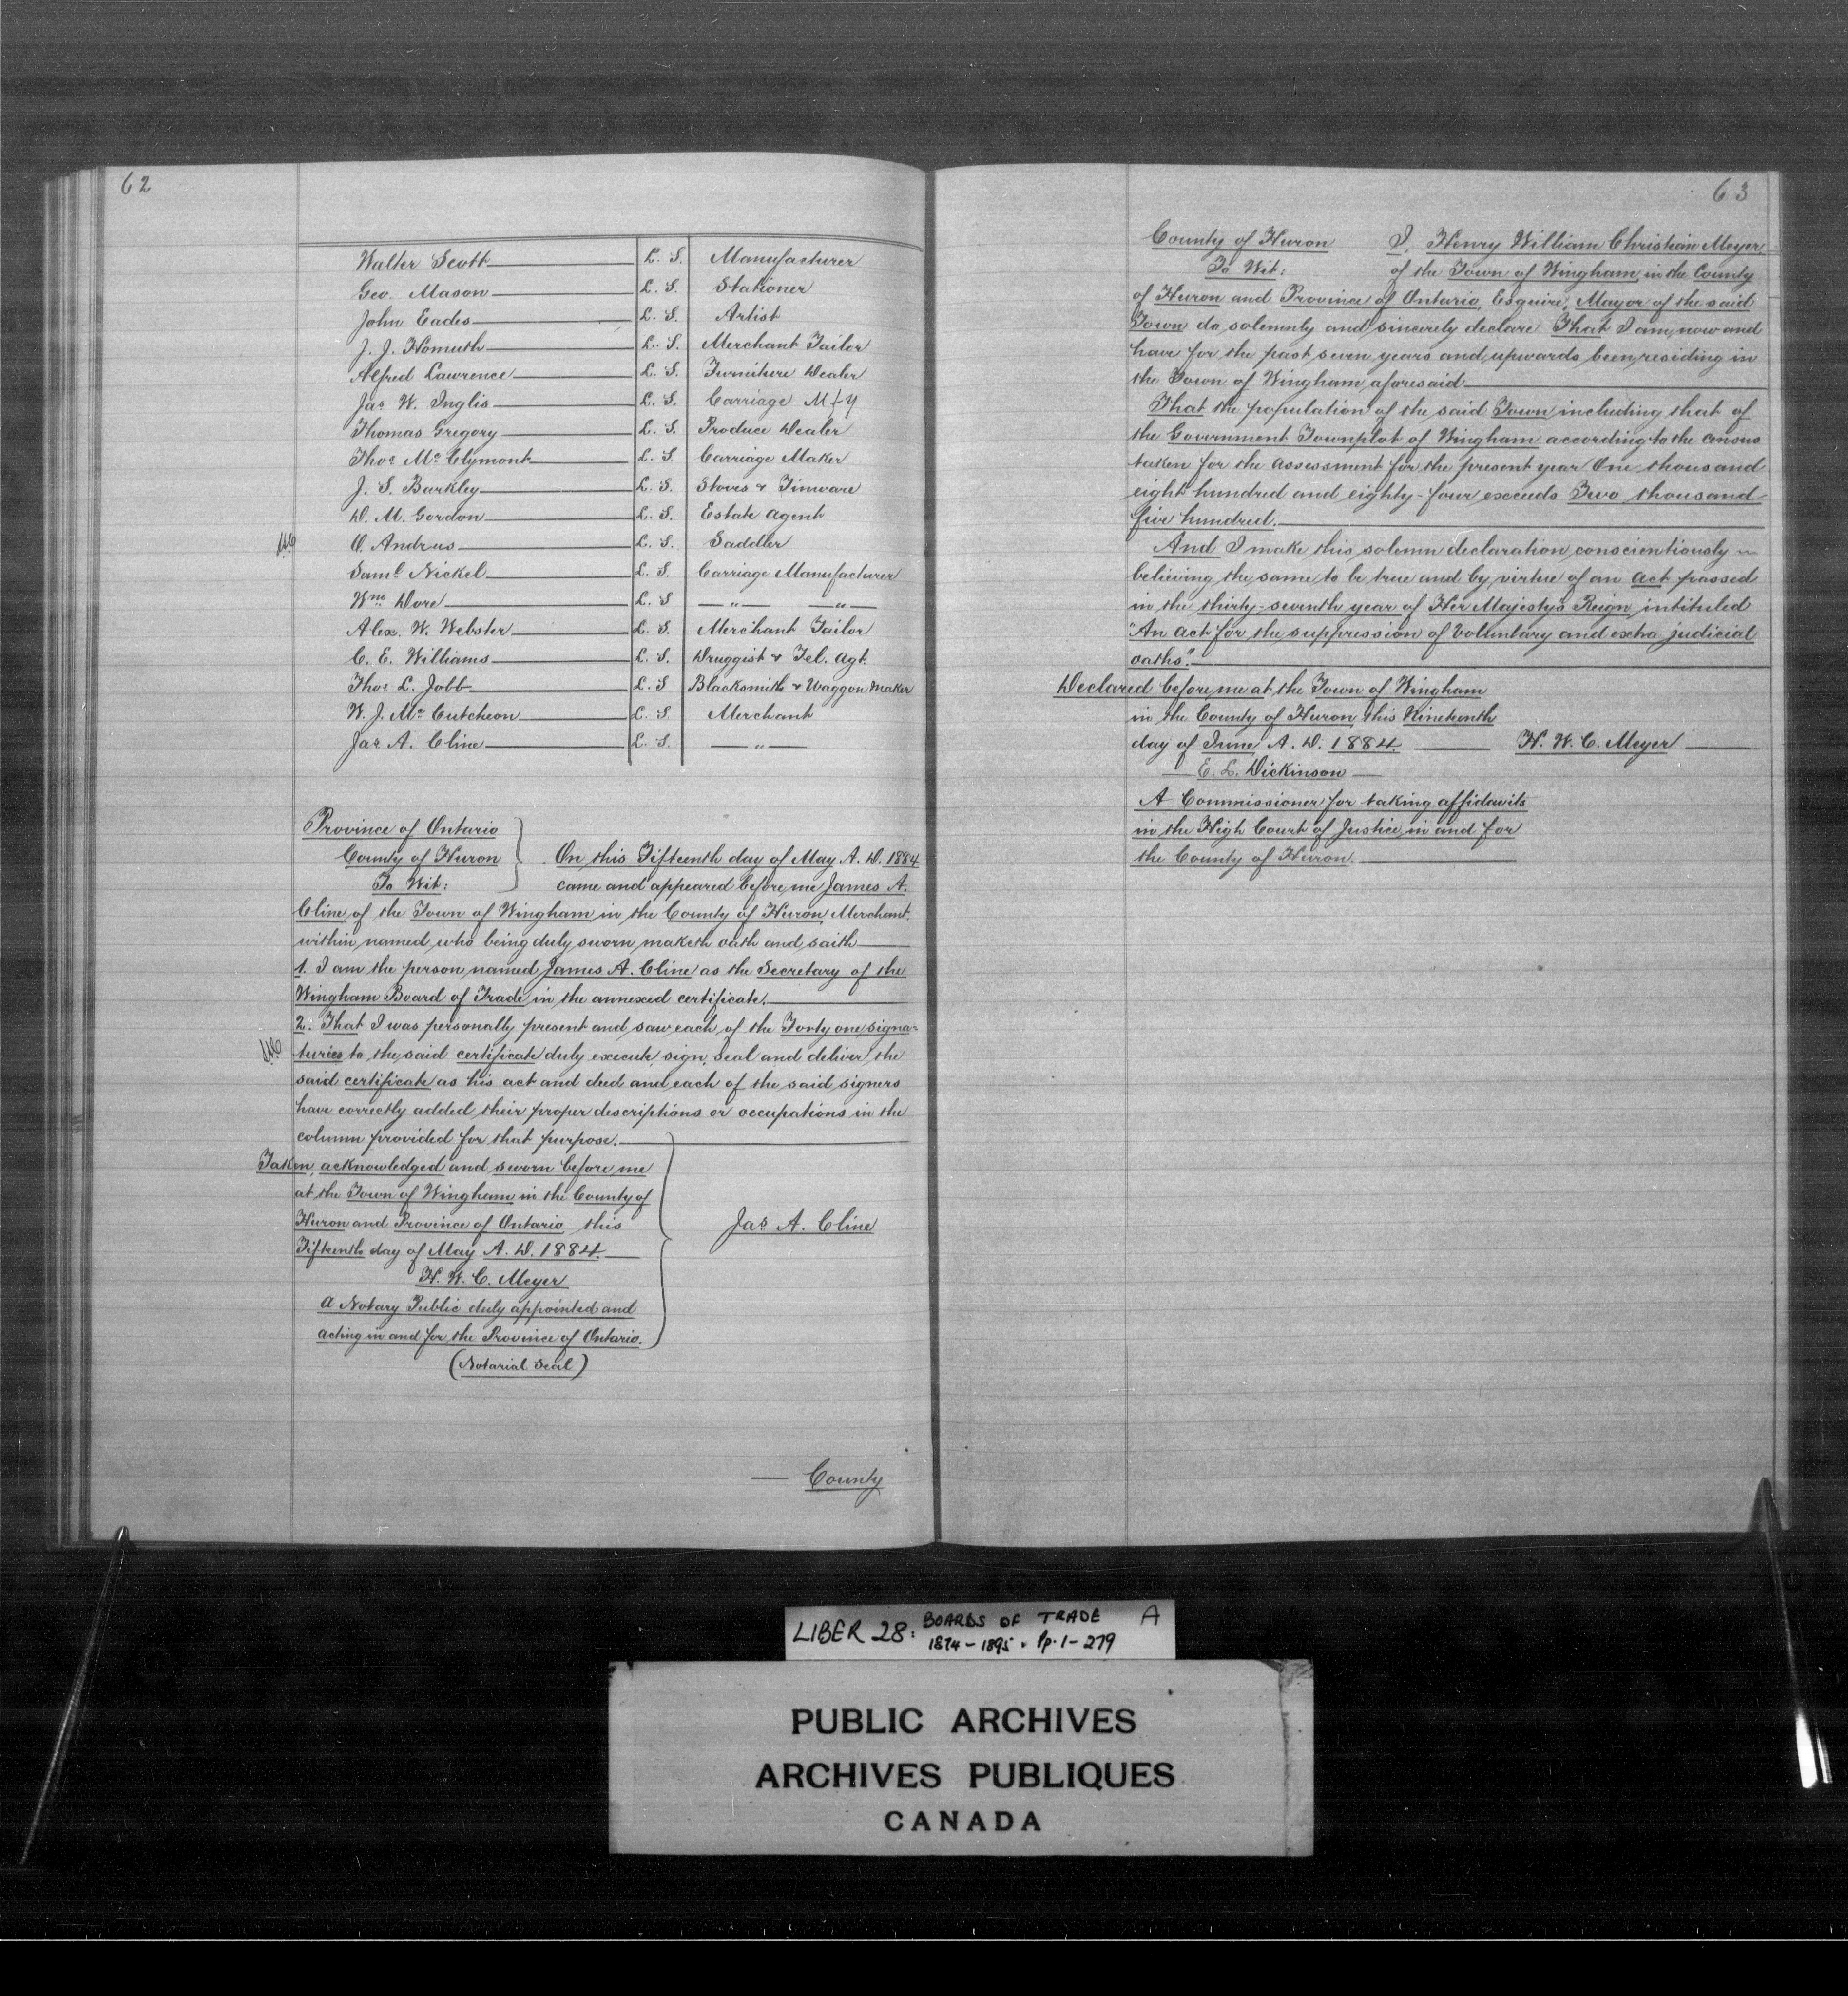 62
Walter Scott L. S. Manufacturer
Geo. Mason L. S. Stationer
John Eades L. S. Artist
J. J. Homuth L. S. Merchant Tailor
Alfred Lawrence L. S. Furniture Dealer
Jas W. Inglis L. S. Carriage Mfy
Thomas Gregory L. S. Produce Dealer
Thos Mc Clymont L. S. Carriage Maker
J. S. Barkley L. S. Stoves & Tinware
D. M. Gordon L. S. Estate Agent
O. Andrus L. S. Saddler
Saml Nickel L. S. Carriage Manufacturer
Wm Dore L. S — " — — " —
Alex. W. Webster L. S. Merchant Tailor
C. E. Williams L. S. Druggist & Tel. Agt.
Thos L. Jobb L. S Blacksmith & Waggon Maker
W. J. Mc Cutcheon L. S. Merchant
Jas A. Cline L. S. — " —
Province of Ontario
County of Huron On this Fifteenth day of May A. D. 1884
To Wit: came and appeared before me James A.
Cline of the Town of Wingham in the County of Huron Merchant,
within named who being duly sworn maketh oath and saith
1. I am the person named James A. Cline as the Secretary of the
Wingham Board of Trade in the annexed certificate.
2. That I was personally present and saw each of the Forty one signa-
turies to the said certificate duly execute, sign, seal and deliver the
said certificate as his act and deed and each of the said signers
have correctly added their proper descriptions or occupations in the
column provided for that purpose.
Taken, acknowledged and sworn before me
at the Town of Wingham in the County of
Huron and Province of Ontario, this
Fifteenth day of May A. D. 1884.
Jas A. Cline
H. W. C. Meyer
A Notary Public duly appointed and
acting in and for the Province of Ontario.
(Notarial Seal)
— County
63
County of Huron I, Henry William Christian Meyer,
To Wit: of the Town of Wingham in the County
of Huron and Province of Ontario, Esquire, Mayor of the said
Town do solemnly and sincerely declare That I am now and
have for the past seven years and upwards been residing in
the Town of Wingham aforesaid
That the population of the said Town including that of
the Government Townplot of Wingham according to the census
taken for the assessment for the present year One thousand
eight hundred and eighty-four exceeds Two thousand
five hundred.
And I make this solemn declaration conscientiously
believing the same to be true and by virtue of an Act passed
in the thirty-seventh year of Her Majesty's Reign, intituled
"An Act for the suppression of Voluntary and extra judicial
oaths".
Declared before me at the Town of Wingham
in the County of Huron this Nineteenth
day of June A. D. 1884. H. W. C. Meyer
— E. L. Dickinson —
A Commissioner for taking affidavits
in the High Court of Justice in and for
the County of Huron.
LIBER 28: BOARDS OF TRADE A
1874-1895. Pp. 1-279
PUBLIC ARCHIVES
ARCHIVES PUBLIQUES
CANADA